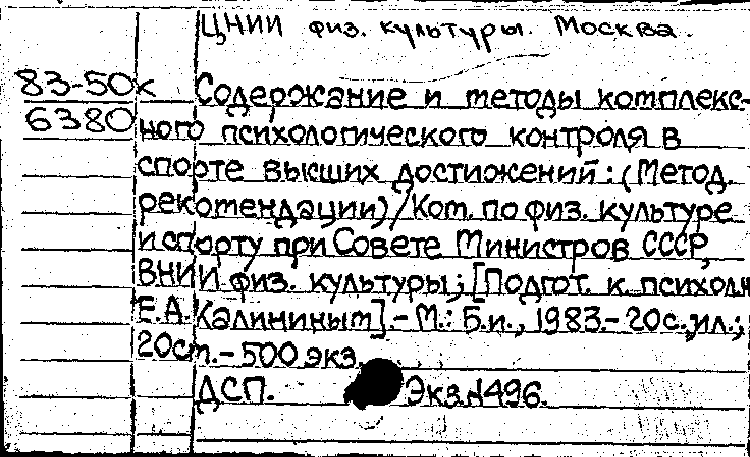 ЦНИИ физ. культуры. Москва.
83-50к
6380
Содержание и методы комплекс-
ного психологического контроля в
спорте высших достижений: (Метод.
рекомендации)/Ком. по физ. культуре
и спорту при Совете Министров СССР,
ВНИИ физ. культуры; [Подгот. к. психол. н
Е.А. Калининым].-М.: Б.и., 1983.-20с., ил.;
20см.-500 экз.
ДСП. Экз.N496.